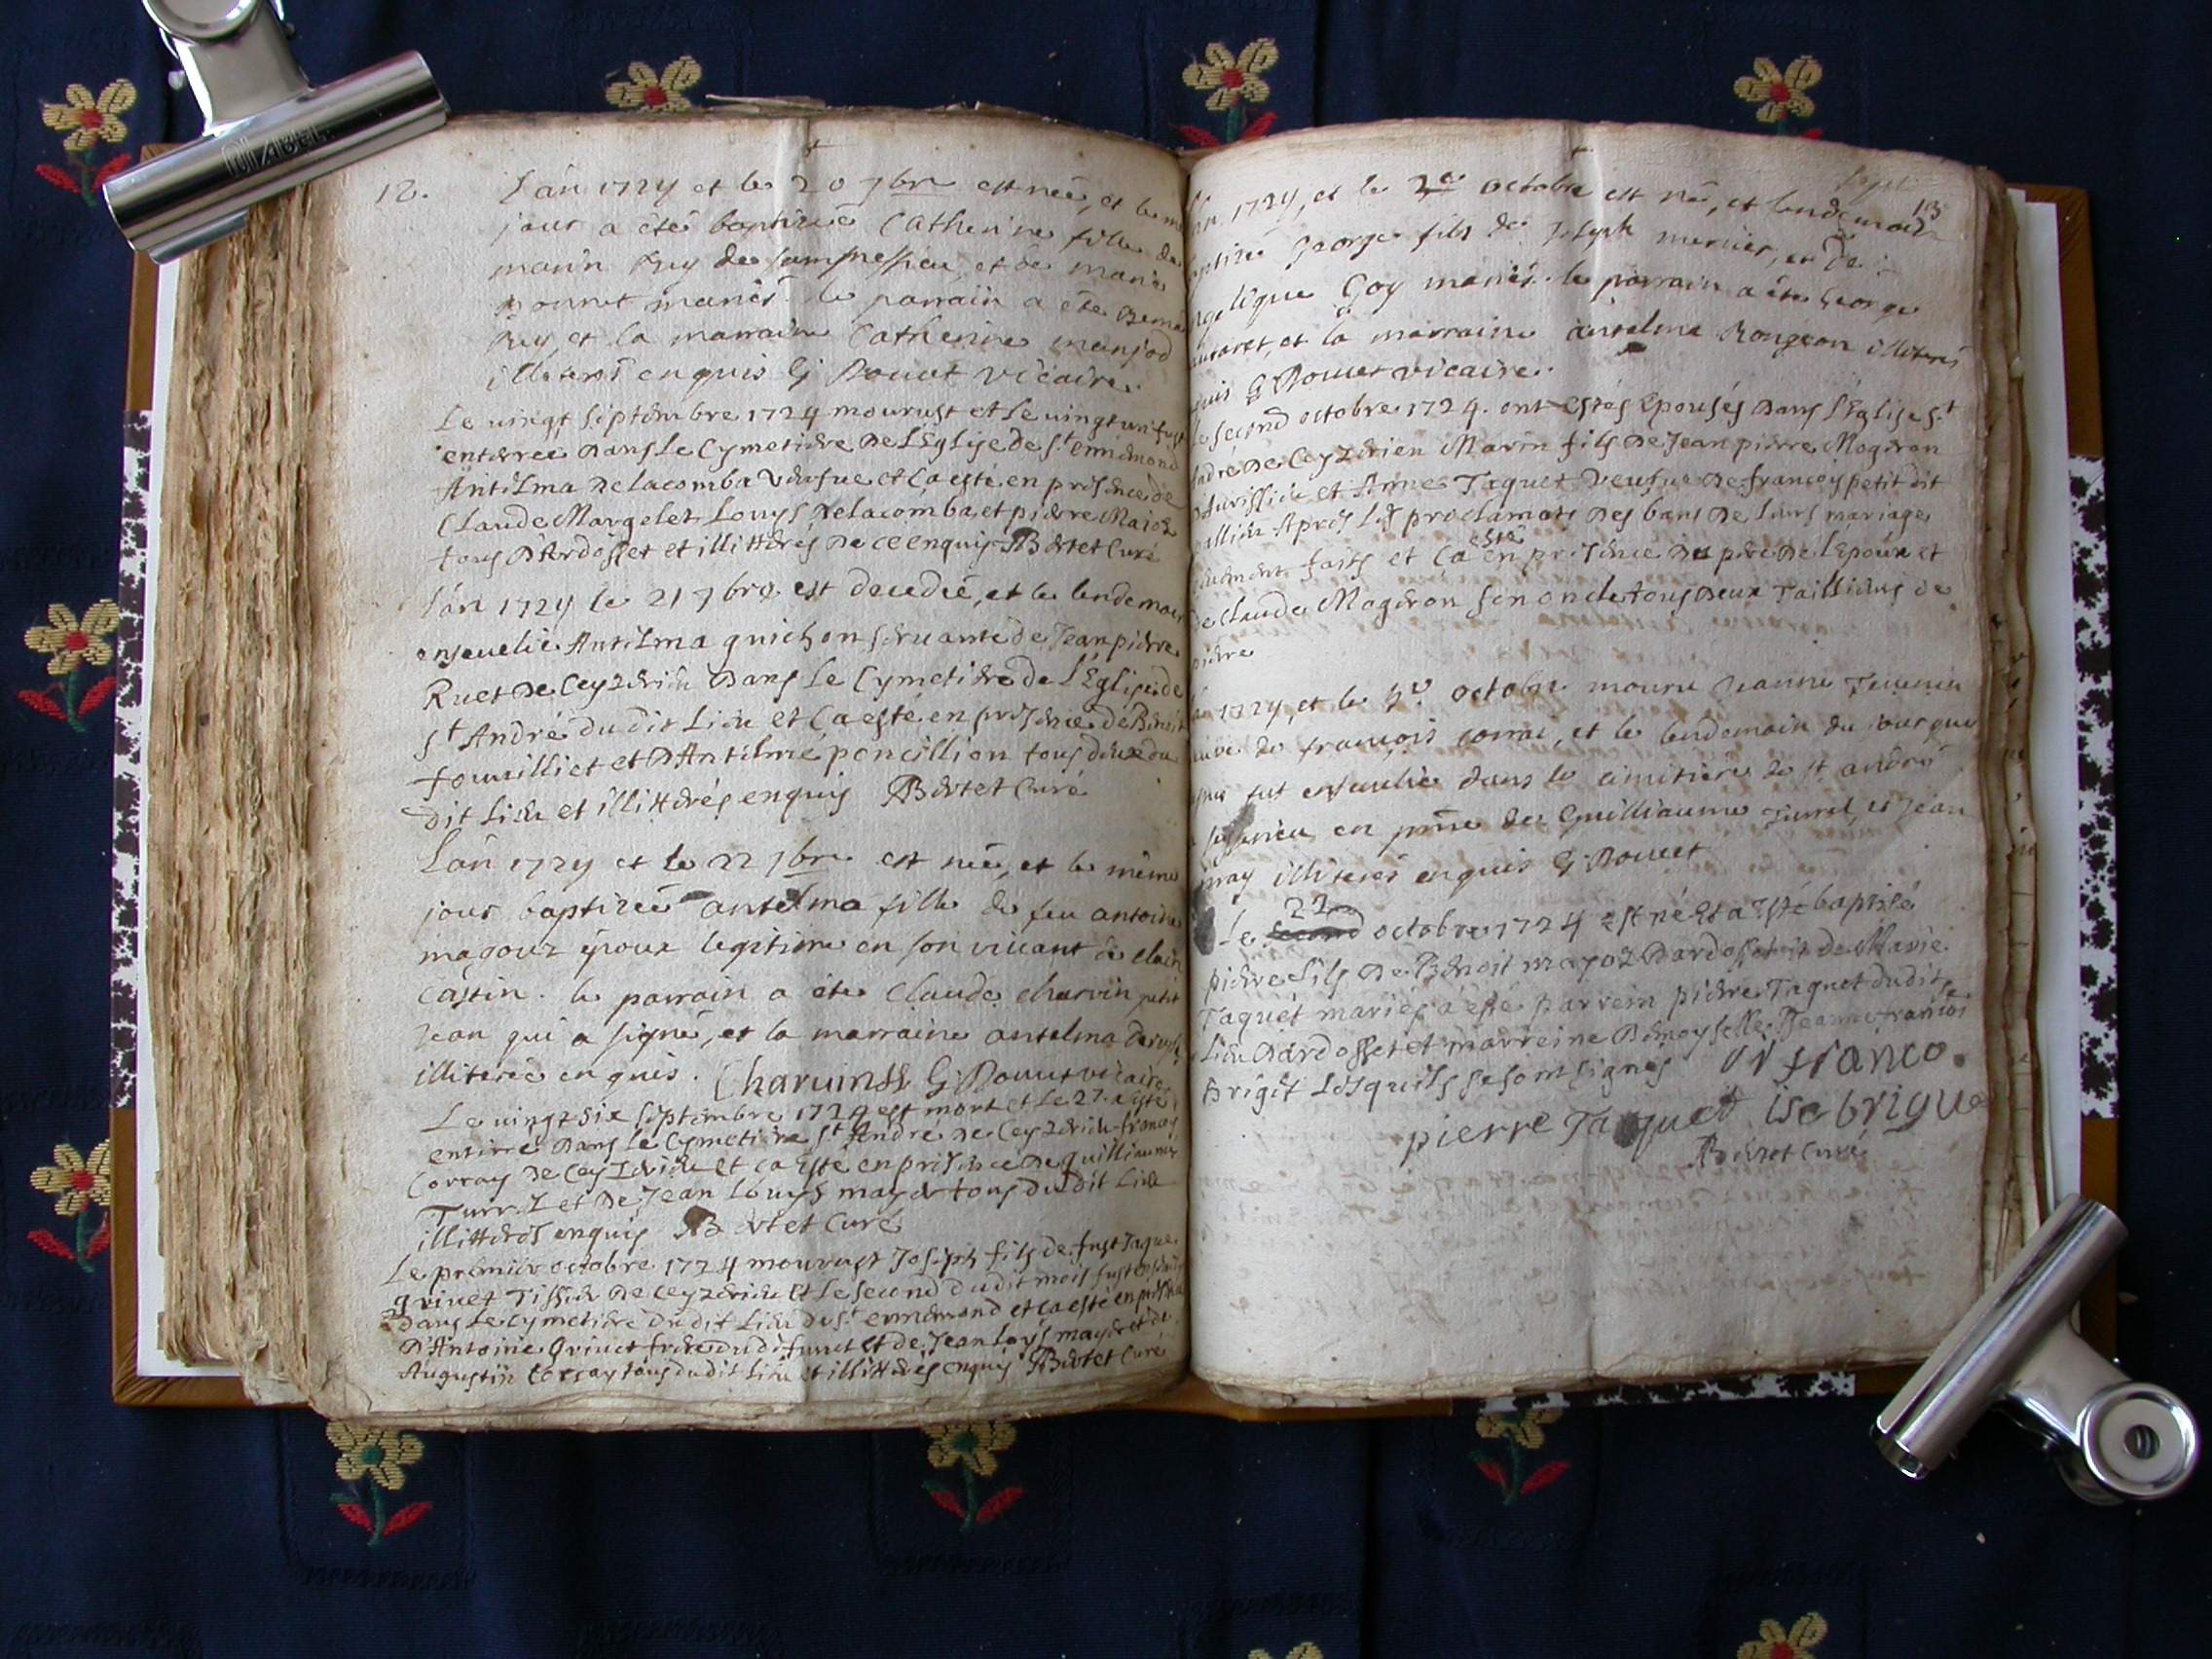 12.
L'an 1724 et le 20 7bre est née, et le m
jour a été baptizée Catherine fille de
marin Rey de et de marie
monnet mariés. le parrain a été
Rey et la marraine Catherine manjod
illiterés enquis G Rouuet vicaire.
Le uingt Septembre 1724 mourust et Le uingt un fust
enterrée Dans Le Cymetiere De L'Eglise de St ennemond
Antelma Delacomba Veufue et ca esté en presence de
Claude Margelet Louys Delacomba et pierre Maioz
tous D'Ardosset et illitterés De ce enquis Bertet Curé
L'an 1724 le 21 7bre est decedée, et le lendemain
enseuelie Antelma guichon seruante de Jean pierre
Ruet De Ceyzerieu Dans Le Cymetiere de L'Eglise de
St André du dit Lieu et Ca esté en presence de Benoit
fournilliet et D'Antelme poncillion tous deux du
dit Lieu et illitterés enquis Bertet Curé
L'an 1724 et le 22 7bre est née, et le même
jour baptizée antelma fille de feu antoine
magouz époux legitime en son viuant de clau
Castin. le parrain a été Claude charvin petit
Jean qui a signé, et la marraine antelma
illiterée enquis. Charuin G Rouuet vicaire
Le uingt six septembre 1724 est mort et Le 27. a esté
enterré Dans Le Cymetiere St André De Ceyzerieu francoy
Corray De Ceyzerieu et ca esté en presence De guilliaume
Turrel et De Jean Louys mayet tous du dit Lieu
illitterés enquis Bertet Curé
Le premier octobre 1724 mourust Joseph fils de Just Jaque
grinet Tissier De Ceyzerieu et Le second du dit mois fust
Dans Le Cymetiere du dit Lieu du St ennemond et ca esté en presence
D'Antoine grinet frere du defunct et de Jean Loys mayet et de
Augustin Corray tous du dit Lieu et illitterés enquis Bertet Curé
13
an 1724, et le 2e octobre est né, et lendemain
ptizé george fils de Joseph mercier, et de
gelique Goy mariés. le parrain a été george
et la marraine antelma Rongeon illiterés
quis G Rouuet vicaire.
Le second octobre 1724. ont estés Epousés Dans L'Eglise St
André De Ceyzerieu Marin fils De Jean pierre Mogeron
et Anne Taquet Veufue De francoy petit dit
Aprés Les proclamats Des bans De Leurs mariages
faits et Ca esté en presence Du pere De L'Epoux et
De Claude Mogeron son oncle tous Deux Taillieurs de
pierre
an 1724, et le octobre mouru Jeanne
de françois corrai, et le lendemain du jour que
fut enseuelie dans le cimitiere de st andré
en pnce de Guilliaume Turrel, et Jean
may illiterés enquis G Rouuet
22
Le second octobre 1724 est né Et a esté baptisé
pierre fils De Benoit mayoz D'ardosset et de Marie
Taquet mariés a esté parrein pierre Taquet dudit
Lieu D'ardosset et marreine Demoyselle Jeanne francois
Brigit Lesquels se sont signés franco.
pierre Taquet ise brigue
Bertet Curé